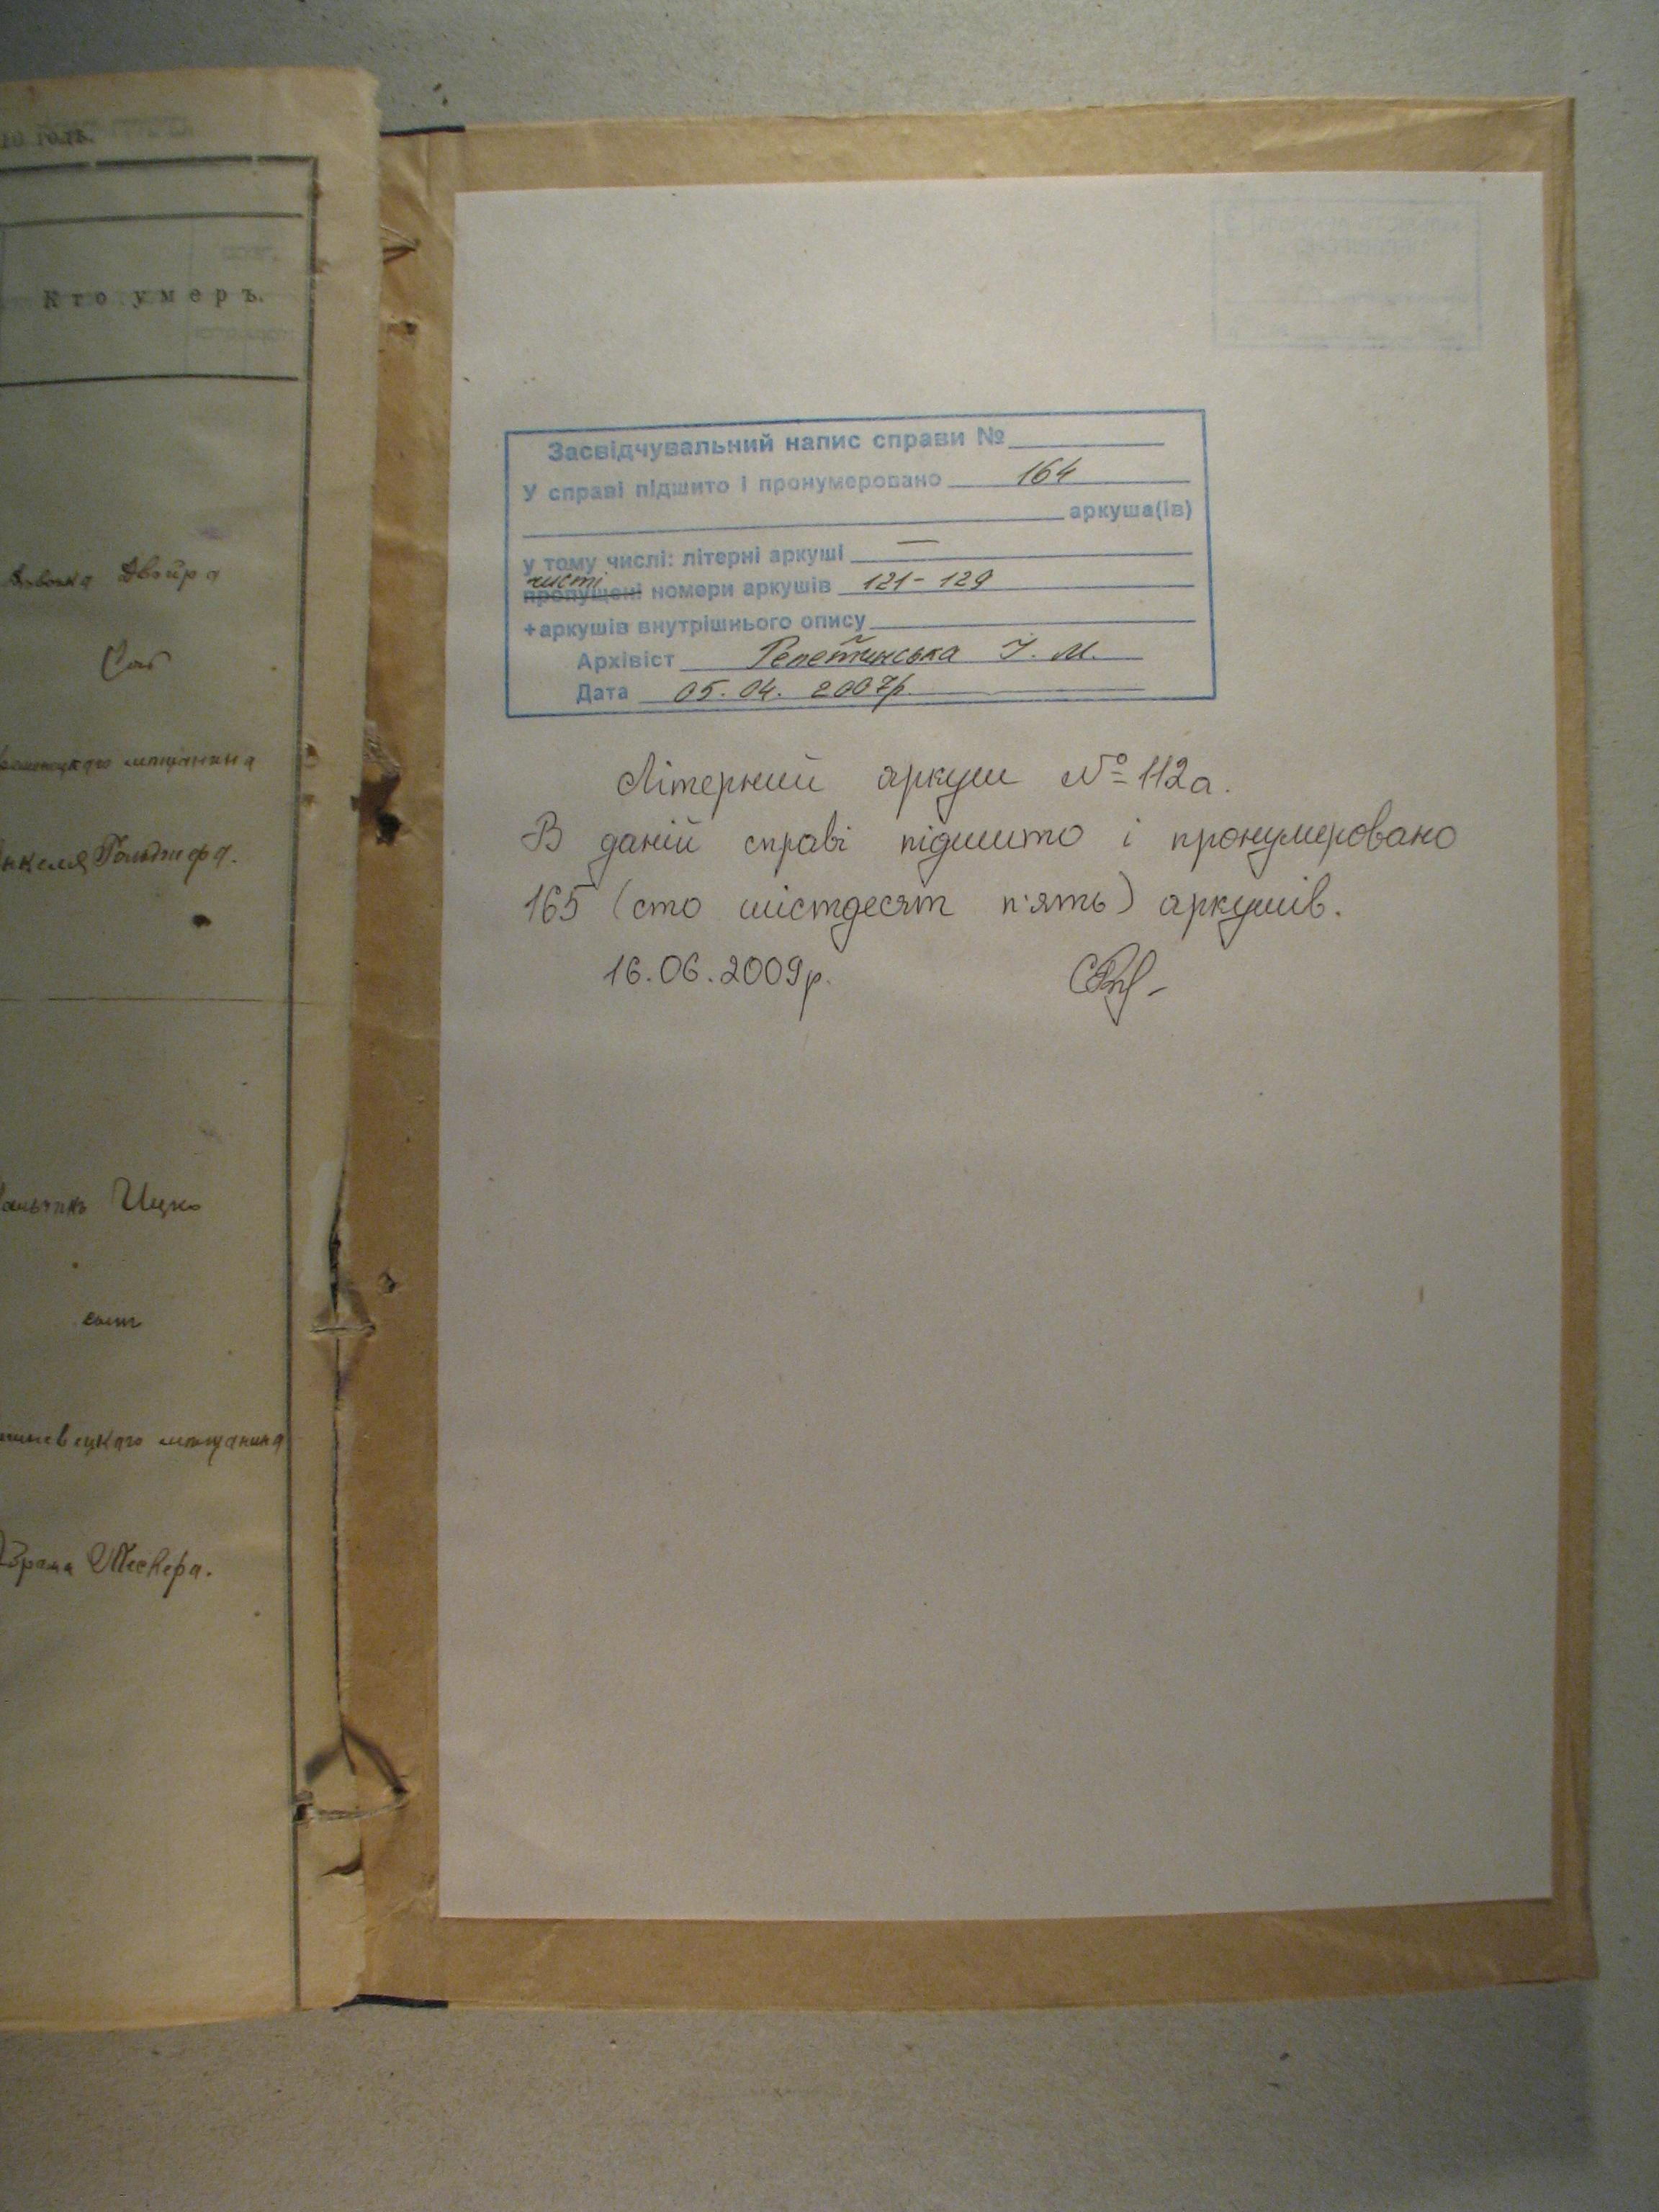 10 годъ.
Кто умеръ.
Двойра
мѣщанина
Ицко
сын
мѣщанина
Засвідчувальний напис справи №
У справі підшито і пронумеровано 164
аркуша(ів)
у тому числі: літерні аркуші —
чисті
пропущені номери аркушів 121-129
+аркушів внутрішнього опису
Архівіст Репетинська І. М.
Дата 05.04.2007р.
Літерний аркуш № 112а.
В даній справі підшито і пронумеровано
165 (сто шістдесят п'ять) аркушів.
16.06.2009р.